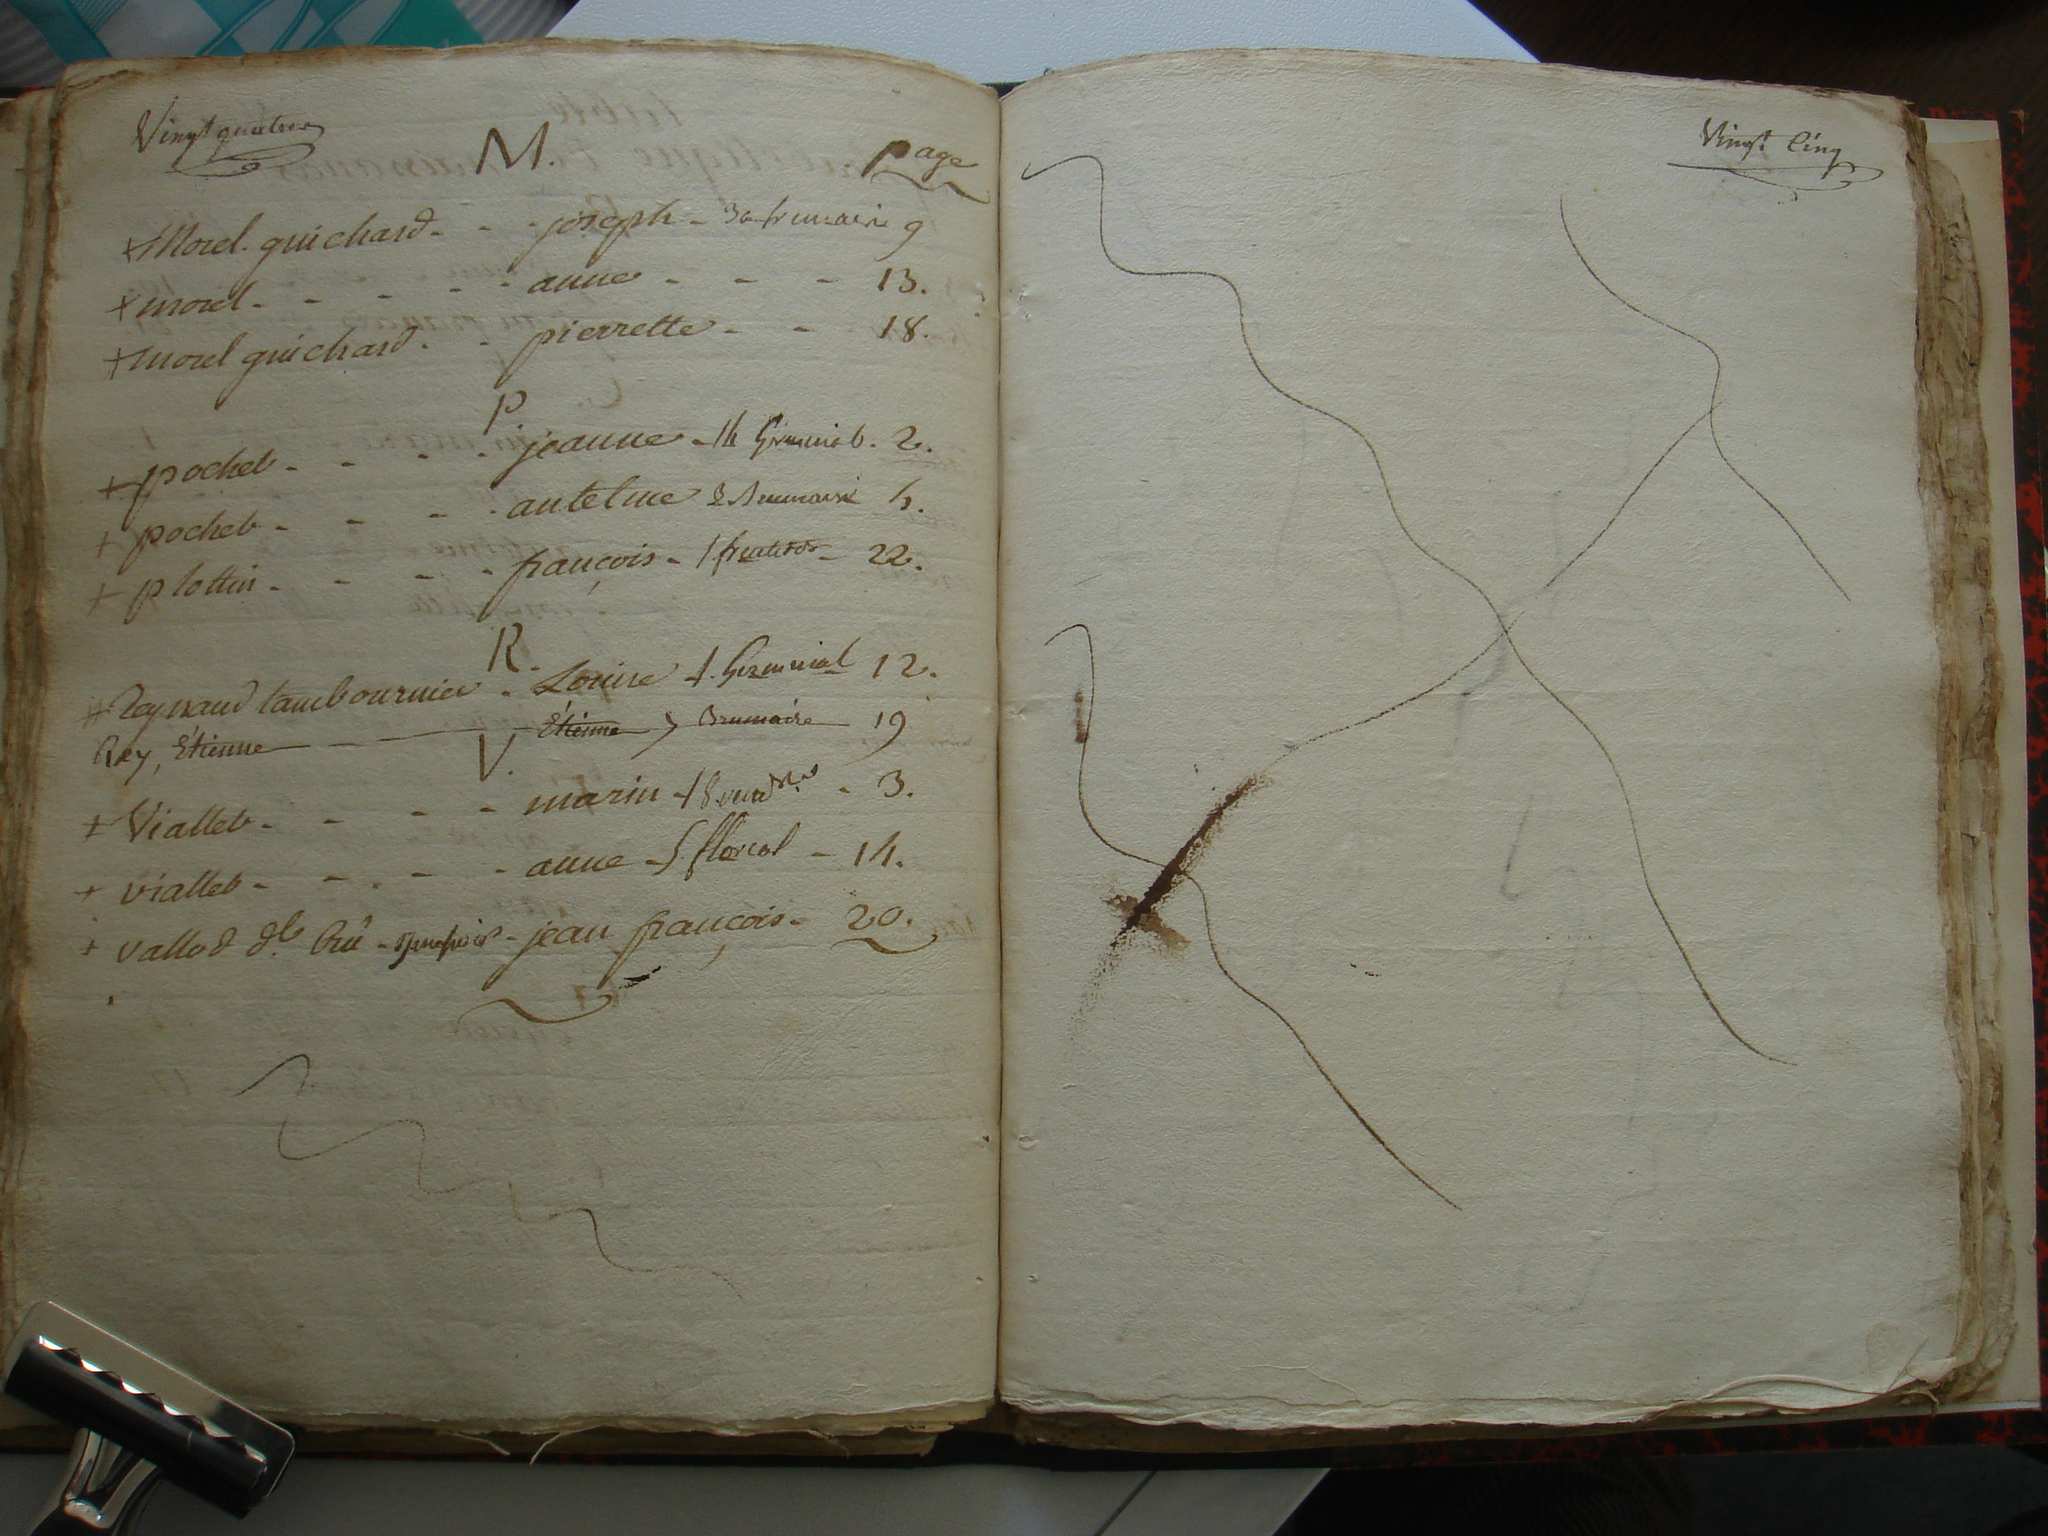 Vingt quatre
M. page
+ Morel guichard - - joseph - 30 frimaire 9
+ morel - - - - - anne - - - 13.
+ morel guichard - - pierrette - - 18.
P
+ pochet - - - - jeanne - 14 Germinal. 2.
+ pochet - - - - antelme 2 Brumaire 4.
+ plottin - - - - françois - 1 fructidor - 22.
R.
+ Reynaud tambournier - Louise 1. Germinal 12.
Rey, Etienne Etienne 5 Brumaire 19
V.
+ Viallet - - - - marin 18 vend.res - 3.
+ viallet - - - - anne - 5 floreal - 14.
+ vallod dt. - jean françois - 20.
Vingt Cinq